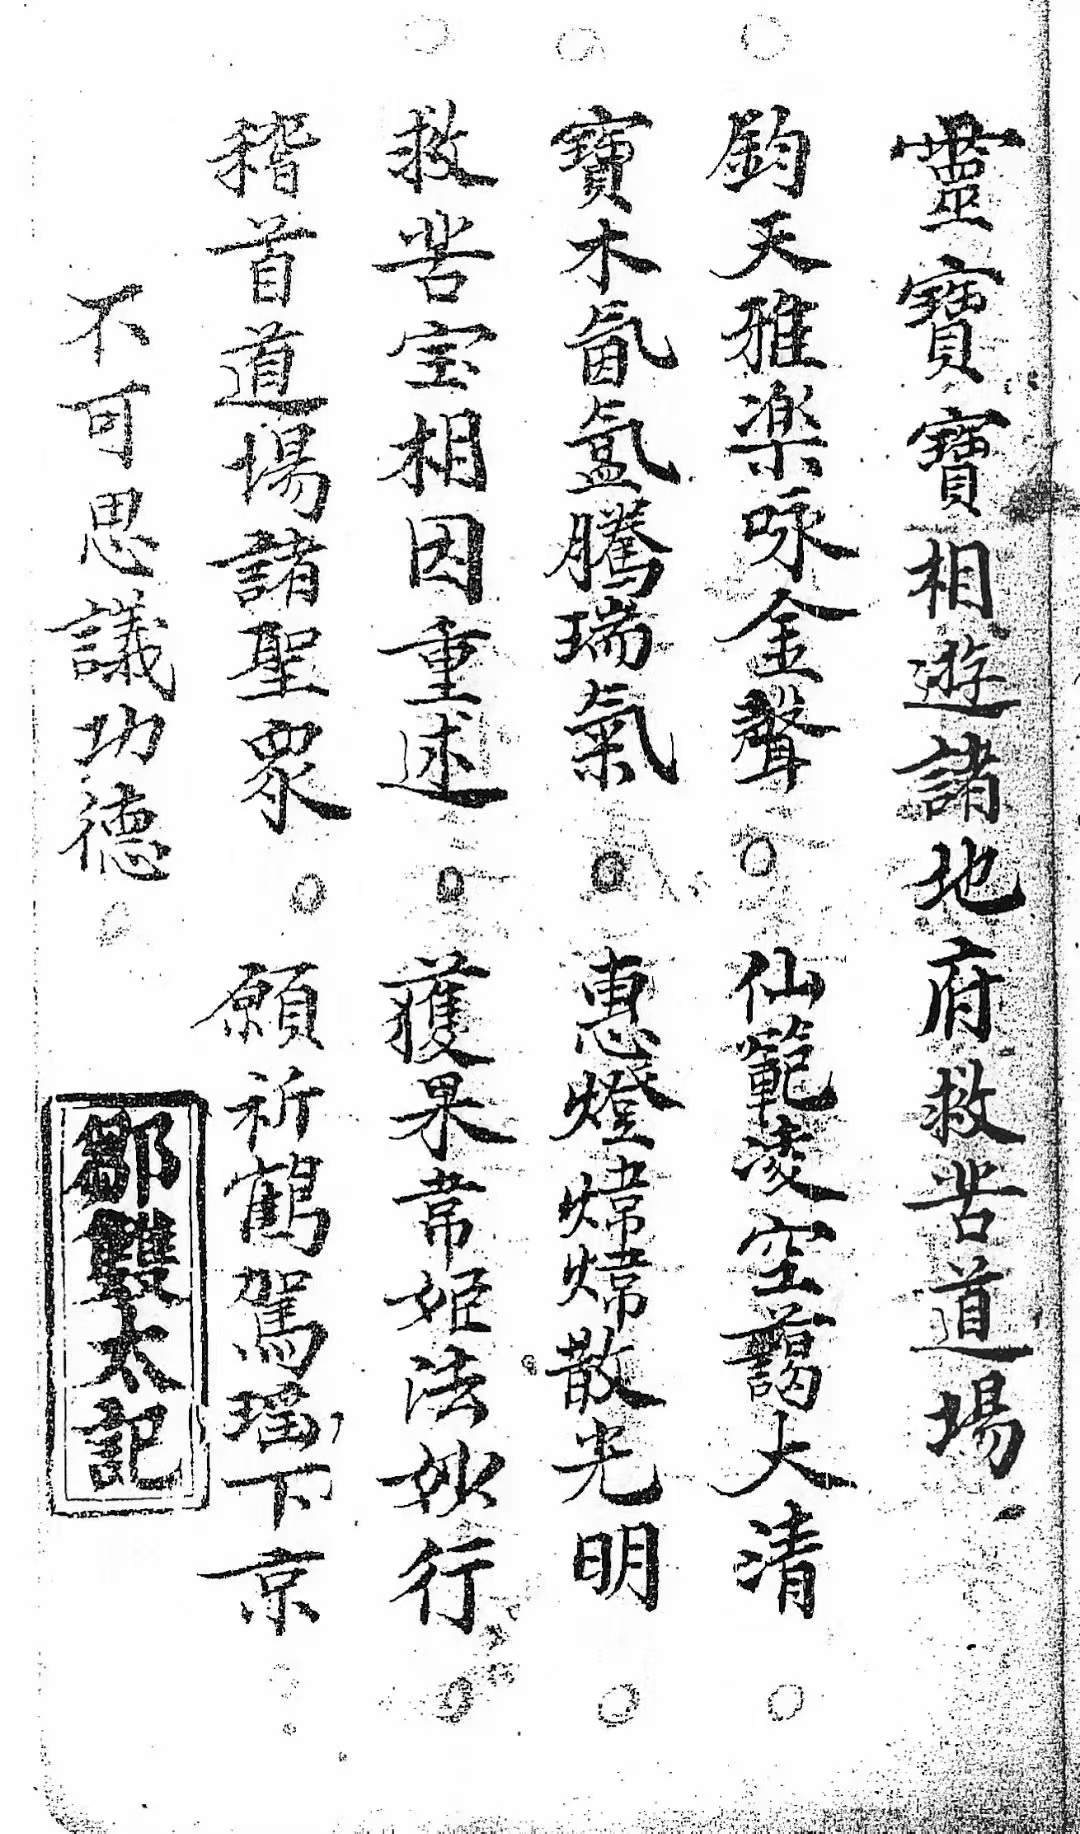 靈寶寶相遊諸地府救苦道場
鈞天雅楽咏金聲○仙範凌空藹大清○
寶木氤氳騰瑞氣○惠燈煒煒散光明○
救苦宝相因重述○獲果常姫法妙行○
稽首道場諸聖衆○願祈鶴駕瑶下京○
不可思議功德○
鄒雙太記